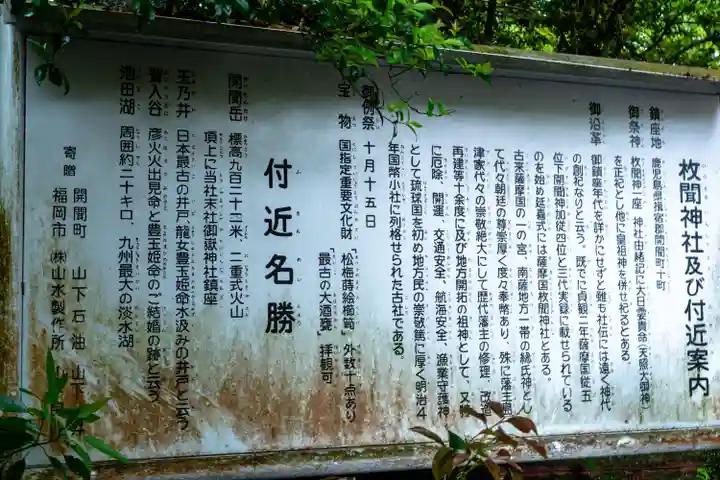 枚聞神社及び付近案内
鎮座地 鹿児島県揖宿郡開聞町十町
御祭神 枚聞神一座 神社由緒記に大日孁貴命(天照大御神)
を正祀とし他に皇祖神を併せ祀るとある。
御沿革 御鎮座年代を詳かにせずと雖も社伝には遠く神代
の創祀なりと云う。既でに貞観二年薩摩国従五
位下開聞神加従四位と三代実録に載せられている
のを始め延喜式には薩摩国枚聞神社とある。
古来薩摩国の一の宮、南薩地方一帯の総氏神とし
て代々朝廷の尊崇厚く度々奉幣あり、殊に藩主島
津家代々の崇敬絶大にして歴代藩主の修理、改造
再建等十余度に及び地方開拓の祖神として、又
に厄除、開運、交通安全、航海安全、漁業守護神
として琉球国を初め地方民の崇敬篤に厚く明治4
年国幣小社に列格せられた古社である。
御例祭 十月十五日
宝物 国指定重要文化財 「松梅蒔絵櫛笥 外数十点あり
「最古の大酒甕」 拝観可
付近名勝
開聞岳 標高九百二十二米、二重式火山
頂上に当社末社御嶽神社鎮座
玉乃井 日本最古の井戸、龍女豊玉姫命水汲みの井戸と云う
聟入谷 彦火火出見命と豊玉姫命のご結婚の跡と云う
池田湖 周囲約二十キロ、九州最大の淡水湖
寄贈 開聞町 山下石油 山下
福岡市 ㈱山水製作所